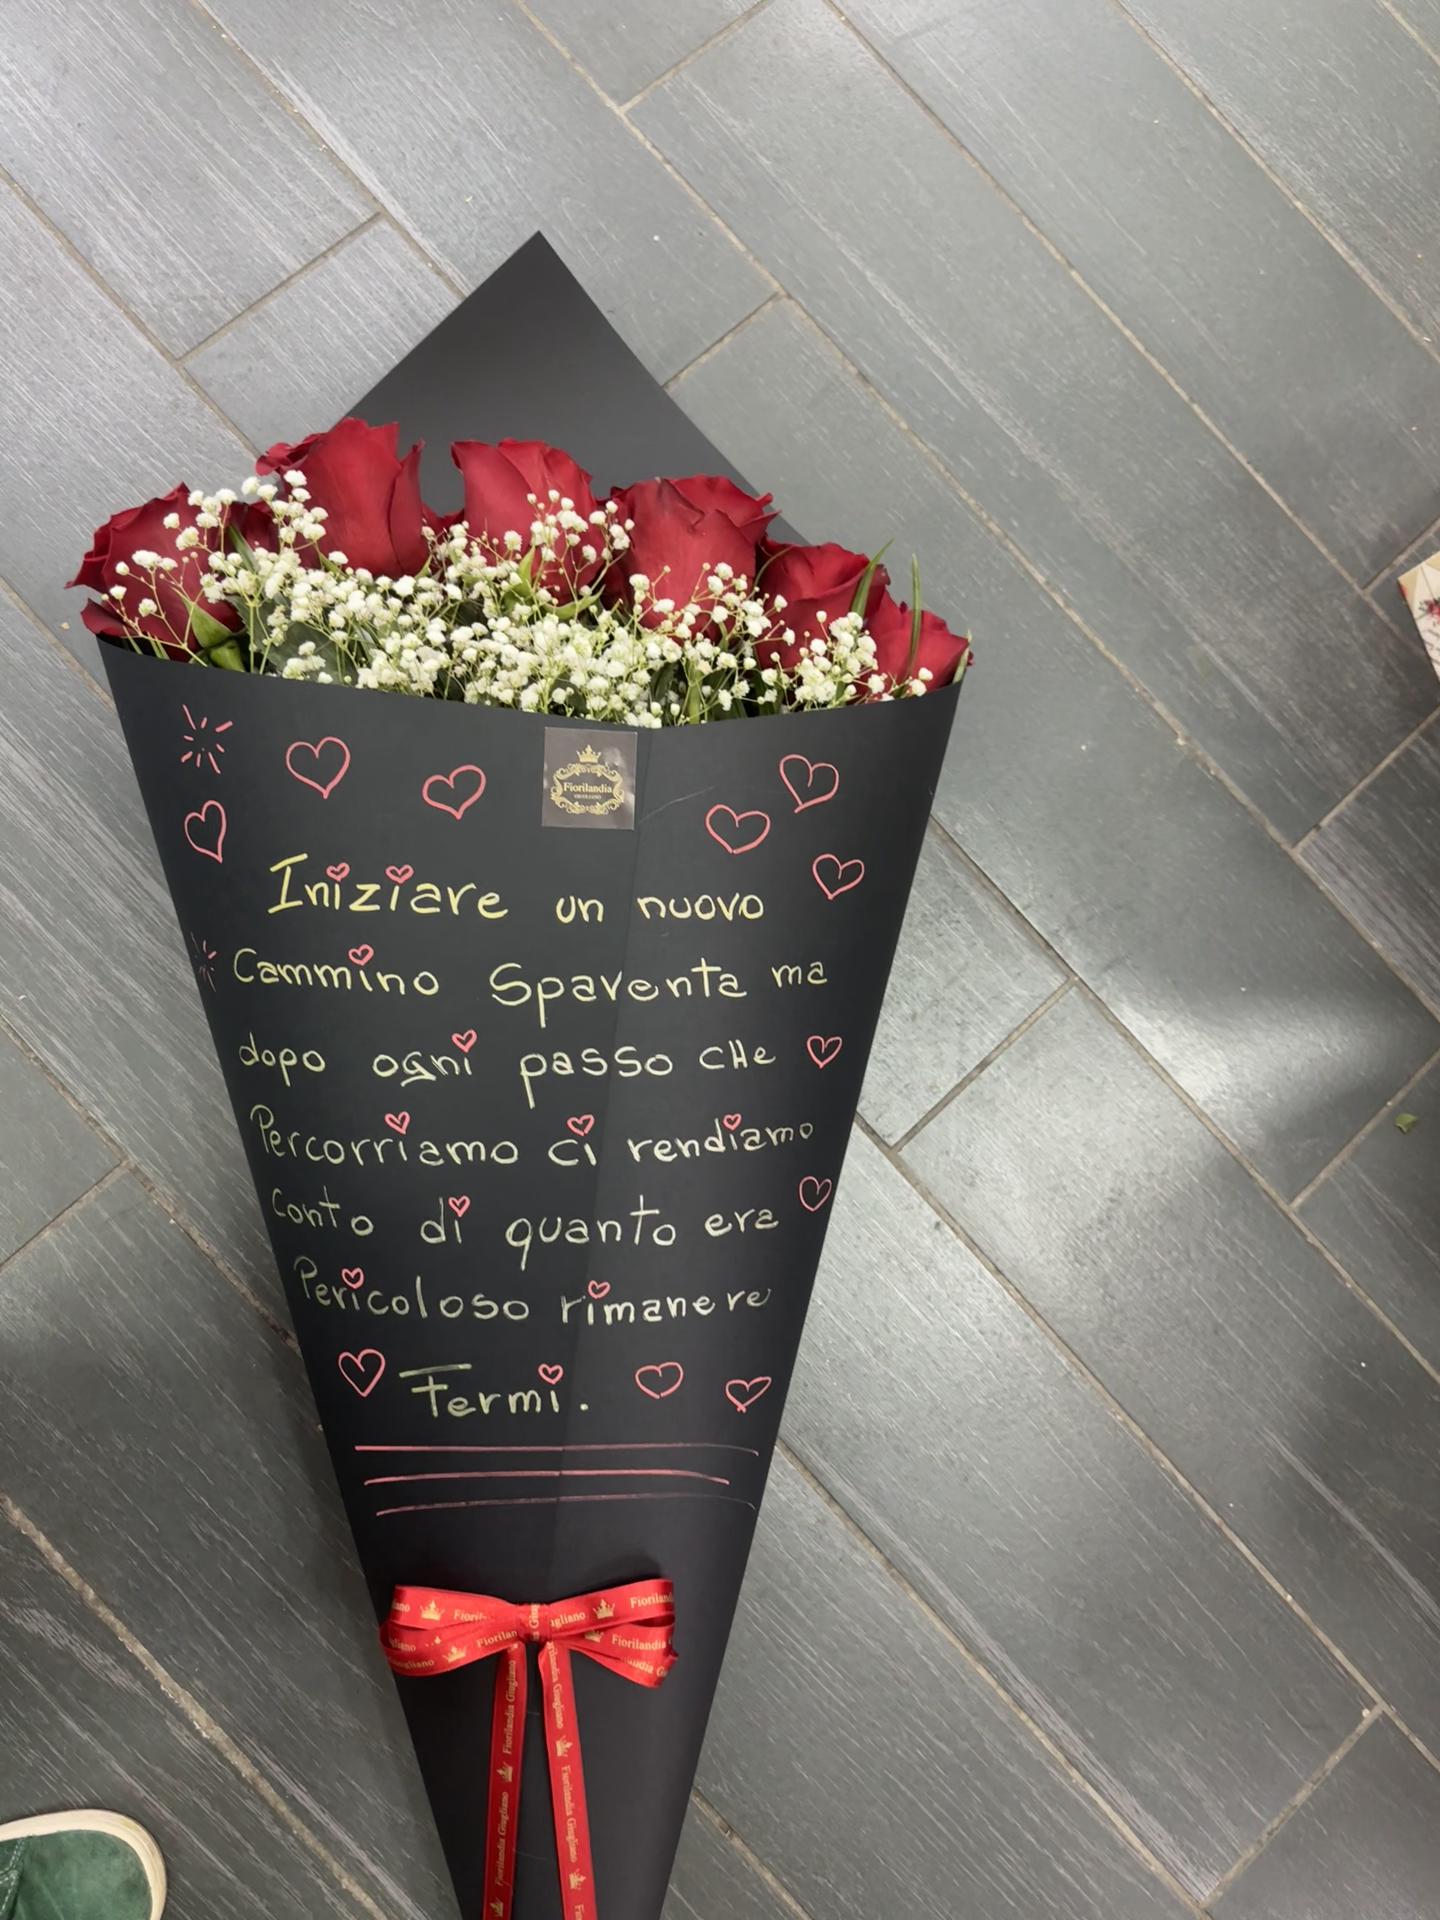 Fiorilandia
GIUGLIANO
Iniziare un nuovo
Cammino Spaventa ma
dopo ogni passo che
Percorriamo ci rendiamo
conto di quanto era
Pericoloso rimanere
Fermi.
Fiorilandia Giugliano
Fiorilandia Giugliano